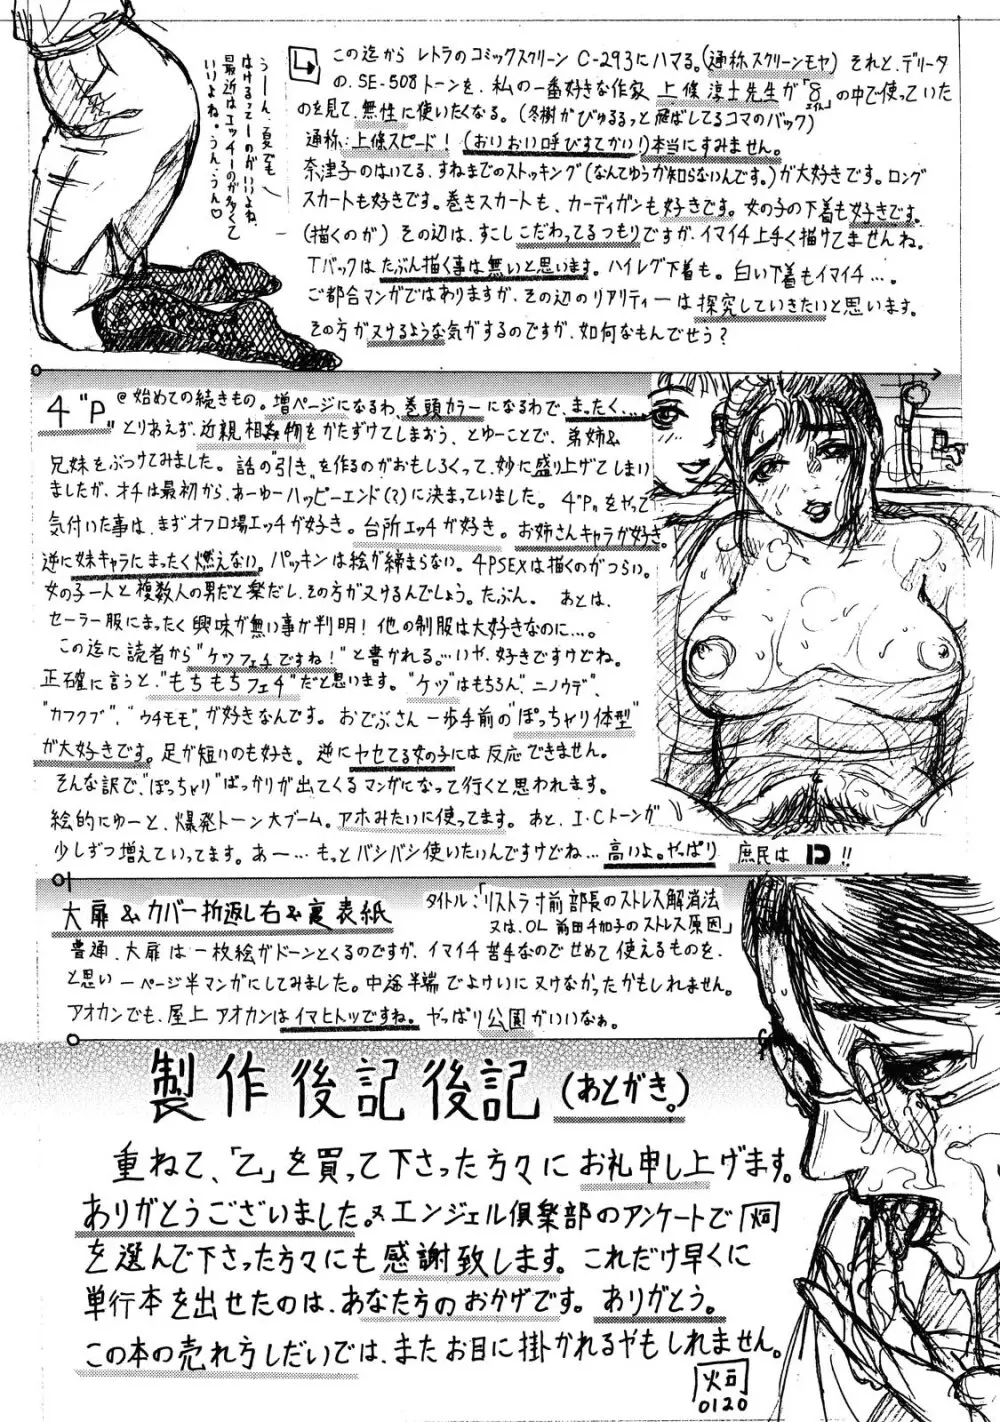 この迄から レトラのコミックスクリーン C-293にハマる。(通称スクリーンモヤ) それと、デリータ
の、SE-508トーンを、私の一番好きな作家 上條淳士先生が「8」の中で使っていた
エイト
のを見て、無性に使いたくなる。(冬樹がびゅるるっと飛ばしてるコマのバック)
通称:上條スピード! (おいおい呼びすてかい!)本当にすみません。
奈津子のはいてる、すねまでのストッキング(なんてゆうか知らないんです。)が大好きです。ロング
スカートも好きです。巻きスカートも、カーディガンも好きです。女の子の下着も好きです。
(描くのが) その辺は、すこしこだわってるつもりですが、イマイチ上手く描けてませんね。
Tバックはたぶん描く事は無いと思います。ハイレグ下着も。白い下着もイマイチ…。
ご都合マンガではありますが、その辺のリアリティーは探究していきたいと思います。
その方がヌけるような気がするのですが、如何なもんでせう?
うーん、夏でも
はけるってーのがいいよね、
最近はエッチーのが多くて
いいよね。うん、うん♡
4"P"
@始めての続きもの。増ページになるわ、巻頭カラーになるわで、まったく…。
とりあえず、近親相姦物をかたずけてしまおう、とゆーことで、弟姉&
兄妹をぶつけてみました。話の"引き"を作るのがおもしろくって、妙に盛り上げてしまい
ましたが、オチは最初から、あーゆーハッピーエンド(?)に決まっていました。4"P"をやって
気付いた事は、まずオフロ場エッチが好き。台所エッチが好き。お姉さんキャラが好き。
逆に妹キャラにまったく燃えない。パッキンは絵が締まらない。4PSEXは描くのがつらい。
女の子一人と複数人の男だと楽だし、その方がヌけるんでしょう。たぶん。 あとは、
セーラー服にまったく興味が無い事が判明!他の制服は大好きなのに…。
この迄に読者から"ケツフェチですね!"と書かれる。…いや、好きですけどね。
正確に言うと、"もちもちフェチ"だと思います。"ケツ"はもちろん、ニノウデ"、
"カフクブ"、"ウチモモ"、が好きなんです。おでぶさん一歩手前の"ぽっちゃり体型"
が大好きです。足が短いのも好き。逆にヤセてる女の子には反応できません。
そんな訳で、"ぽっちゃり"ばっかりが出てくるマンガになって行くと思われます。
絵的にゆーと、爆発トーン大ブーム。アホみたいに使ってます。あと、I・Cトーンが
少しずつ増えていってます。あー…もっとバシバシ使いたいんですけどね…高いよ。やっぱり 庶民は !!
大扉&カバー折返し右&裏表紙
タイトル:「リストラ寸前部長のストレス解消法
又は、OL 前田千加子のストレス原因」
普通、大扉は一枚絵がドーンとくるのですが、イマイチ苦手なのでせめて使えるものを、
と思い一ページ半マンガにしてみました。中途半端でよけいにヌけなかったかもしれません。
アオカンでも、屋上アオカンはイマヒトツですね。やっぱり公園がいいなぁ。
製作後記後記(あとがき。)
重ねて、「乙」を買って下さった方々にお礼申し上げます。
ありがとうございました。又エンジェル倶楽部のアンケートで
を選んで下さった方々にも感謝致します。これだけ早くに
単行本を出せたのは、あなた方のおかげです。ありがとう。
この本の売れ方しだいでは、またお目に掛かれるやもしれません。
0120